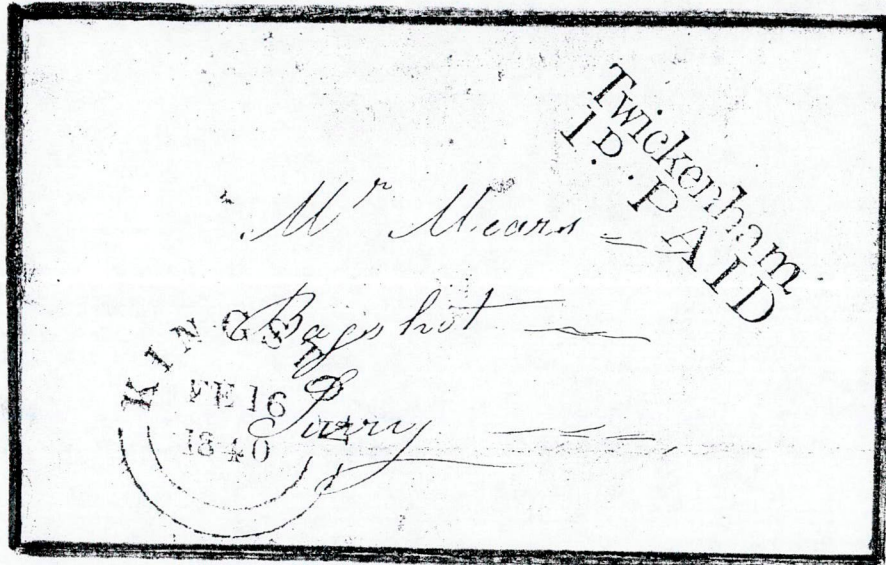 Twickenham
1D. PAID
Mr Mears
Bagshot
Surry
KINGSTON
FE 16
1840